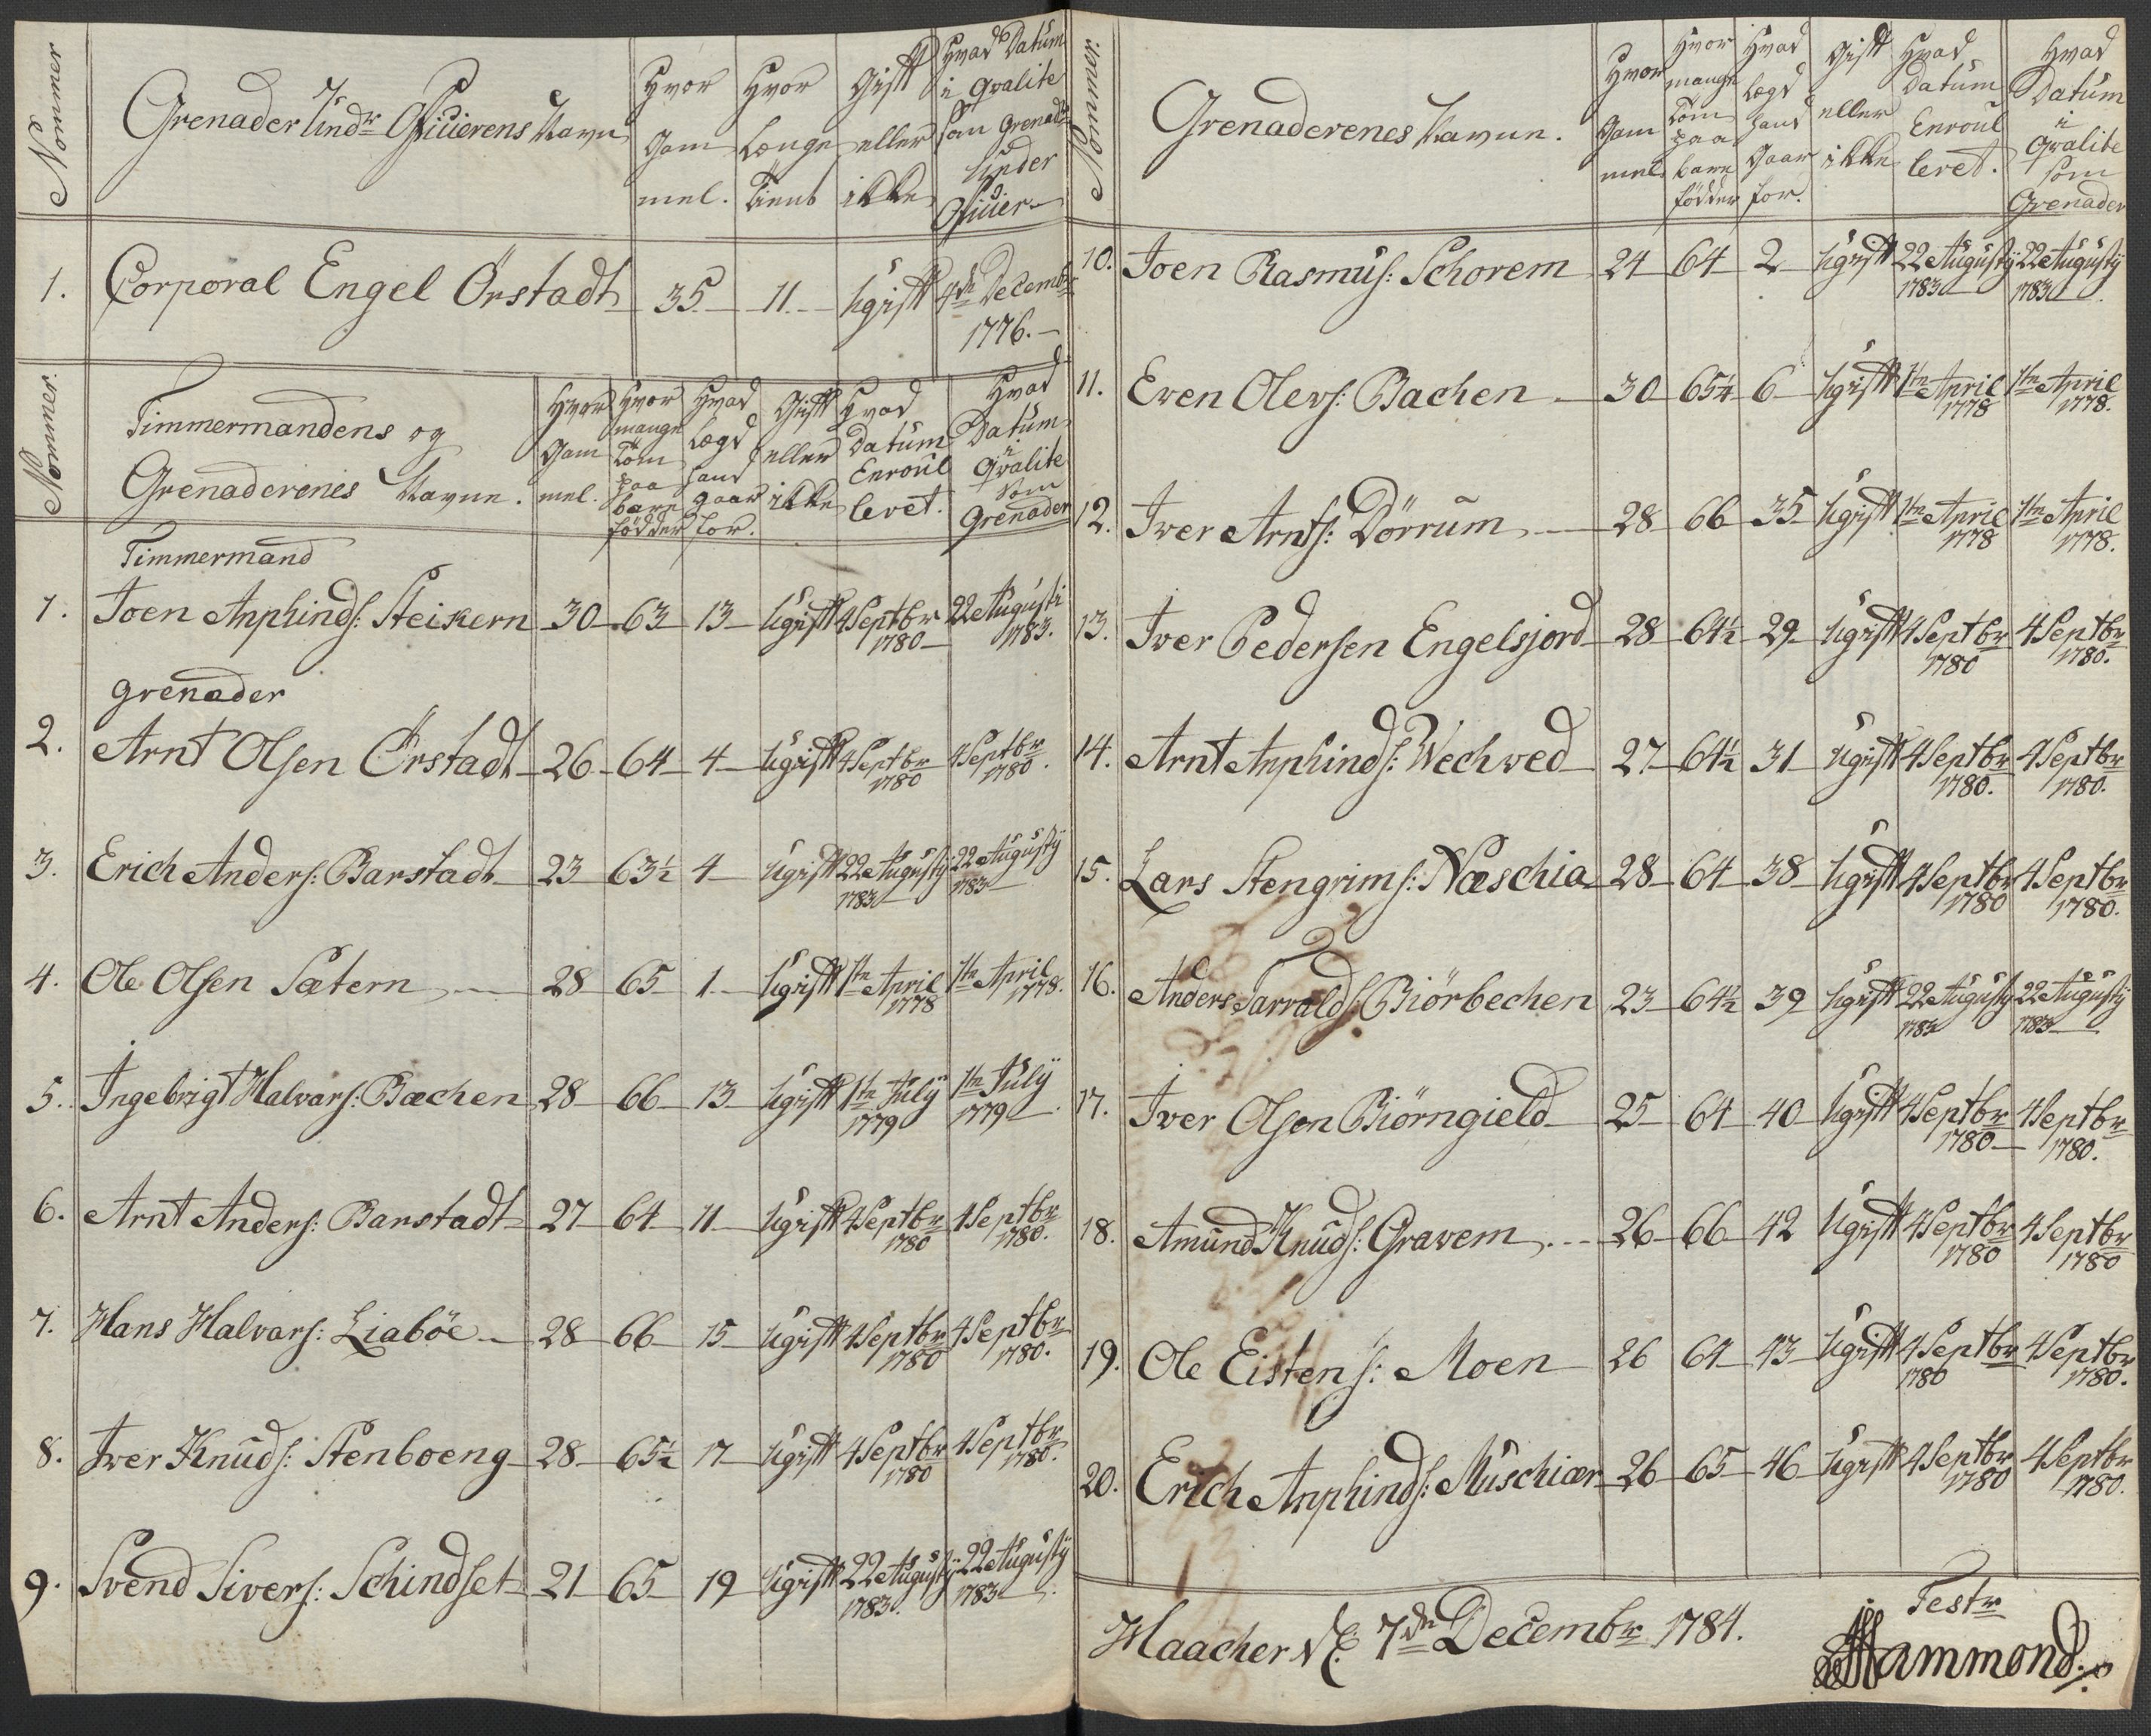 Nommer
Grenader Undr Officierens Navn
Hvor Gam mel.
Hvor Længe Tient
Gift eller ikke
Hvad Datum i Qvalite som Grenadr Under Officier
1. Corporal Engel Örstadt 35 11 Ugift 4de Decembr 1776.
Nommer.
Timmermandens og
Grenaderenes Navne.
Hvor Gam mel.
Hvor mange Tom paa bare födder
Hvad Lægd hand gaar for.
Gift eller ikke
Hvad Datum Enroul leret.
Hvad Datum i Qvalite som Grenader
Timmermand
1. Joen Anphinds: Steikern 30 63 13 Ugift 4 Septbr 1780 22 Augusti 1783.
Grenader
2. Arnt Olsen Örstadt 26 64 4 Ugift 4 Septbr 1780 4 Septbr 1780.
3. Erich Anders: Barstadt 23 63½ 4 Ugift 22 Augustÿ 1783 22 Augustÿ 1783
4. Ole Olsen Sætern 28 65 1 Ugift 1te April 1778 1te April 1778.
5. Ingebrigt Halvars: Bæchen 28 66 13 Ugift 1te Julÿ 1779 1te Julÿ 1779
6. Arnt Anders: Barstadt 27 64 11 Ugift 4 Septbr 1780 4 Septbr 1780.
7. Hans Halvars: Liaböe 28 66 15 Ugift 4 Septbr 1780 4 Septbr 1780.
8. Iver Knuds: Stenboeng 28 65½ 17 Ugift 4 Septbr 1780 4 Septbr 1780.
9. Svend Sivers: Schindset 21 65 19 Ugift 22 Augustÿ 1783. 22 Augustÿ 1783
Nommer.
Grenaderenes Navne.
Hvor Gam mel.
Hvor mange Tom paa bare födder
Hvad Lægd hand gaar for.
Gift eller ikke
Hvad Datum Enroul leret.
Hvad Datum i Qvalite som Grenader
10. Joen Rasmus: Schorem 24 64 2 Ugift 22 Augustÿ 1783 22 Augustÿ 1783
11. Even Olevs: Bachen 30 65¼ 6 Ugift 1te April 1778 1te April 1778.
12. Iver Arnts: Dörrum 28 66 35 Ugift 1te April 1778 1te April 1778.
13. Iver Pedersen Engelsjord 28 64½ 29 Ugift 4 Septbr 1780 4 Septbr 1780.
14. Arnt Anphinds: Wechved 27 64½ 31 Ugift 4 Septbr 1780. 4 Septbr 1780.
15. Lars Stengrims: Næschia 28 64 38 Ugift 4 Septbr 1780 4 Septbr 1780.
16. Anders Tarralds: Biörbechen 23 64½ 39 Ugift 22 Augustÿ 1783 22 Augustÿ 1783
17. Iver Olsen Biörngield 25 64 40 Ugift 4 Septbr 1780 4 Septbr 1780.
18. Amund Knuds: Gravem 26 66 42 Ugift 4 Septbr 1780 4 Septbr 1780
19. Ole Eistens: Moen 26 64 43 Ugift 4 Septbr 1780 4 Septbr 1780.
20. Erich Anphinds: Muschiær 26 65 46 Ugift 4 Septbr 1780 4 Septbr 1780.
Haacher d. 7de Decembr 1784.
Testr
Hammond